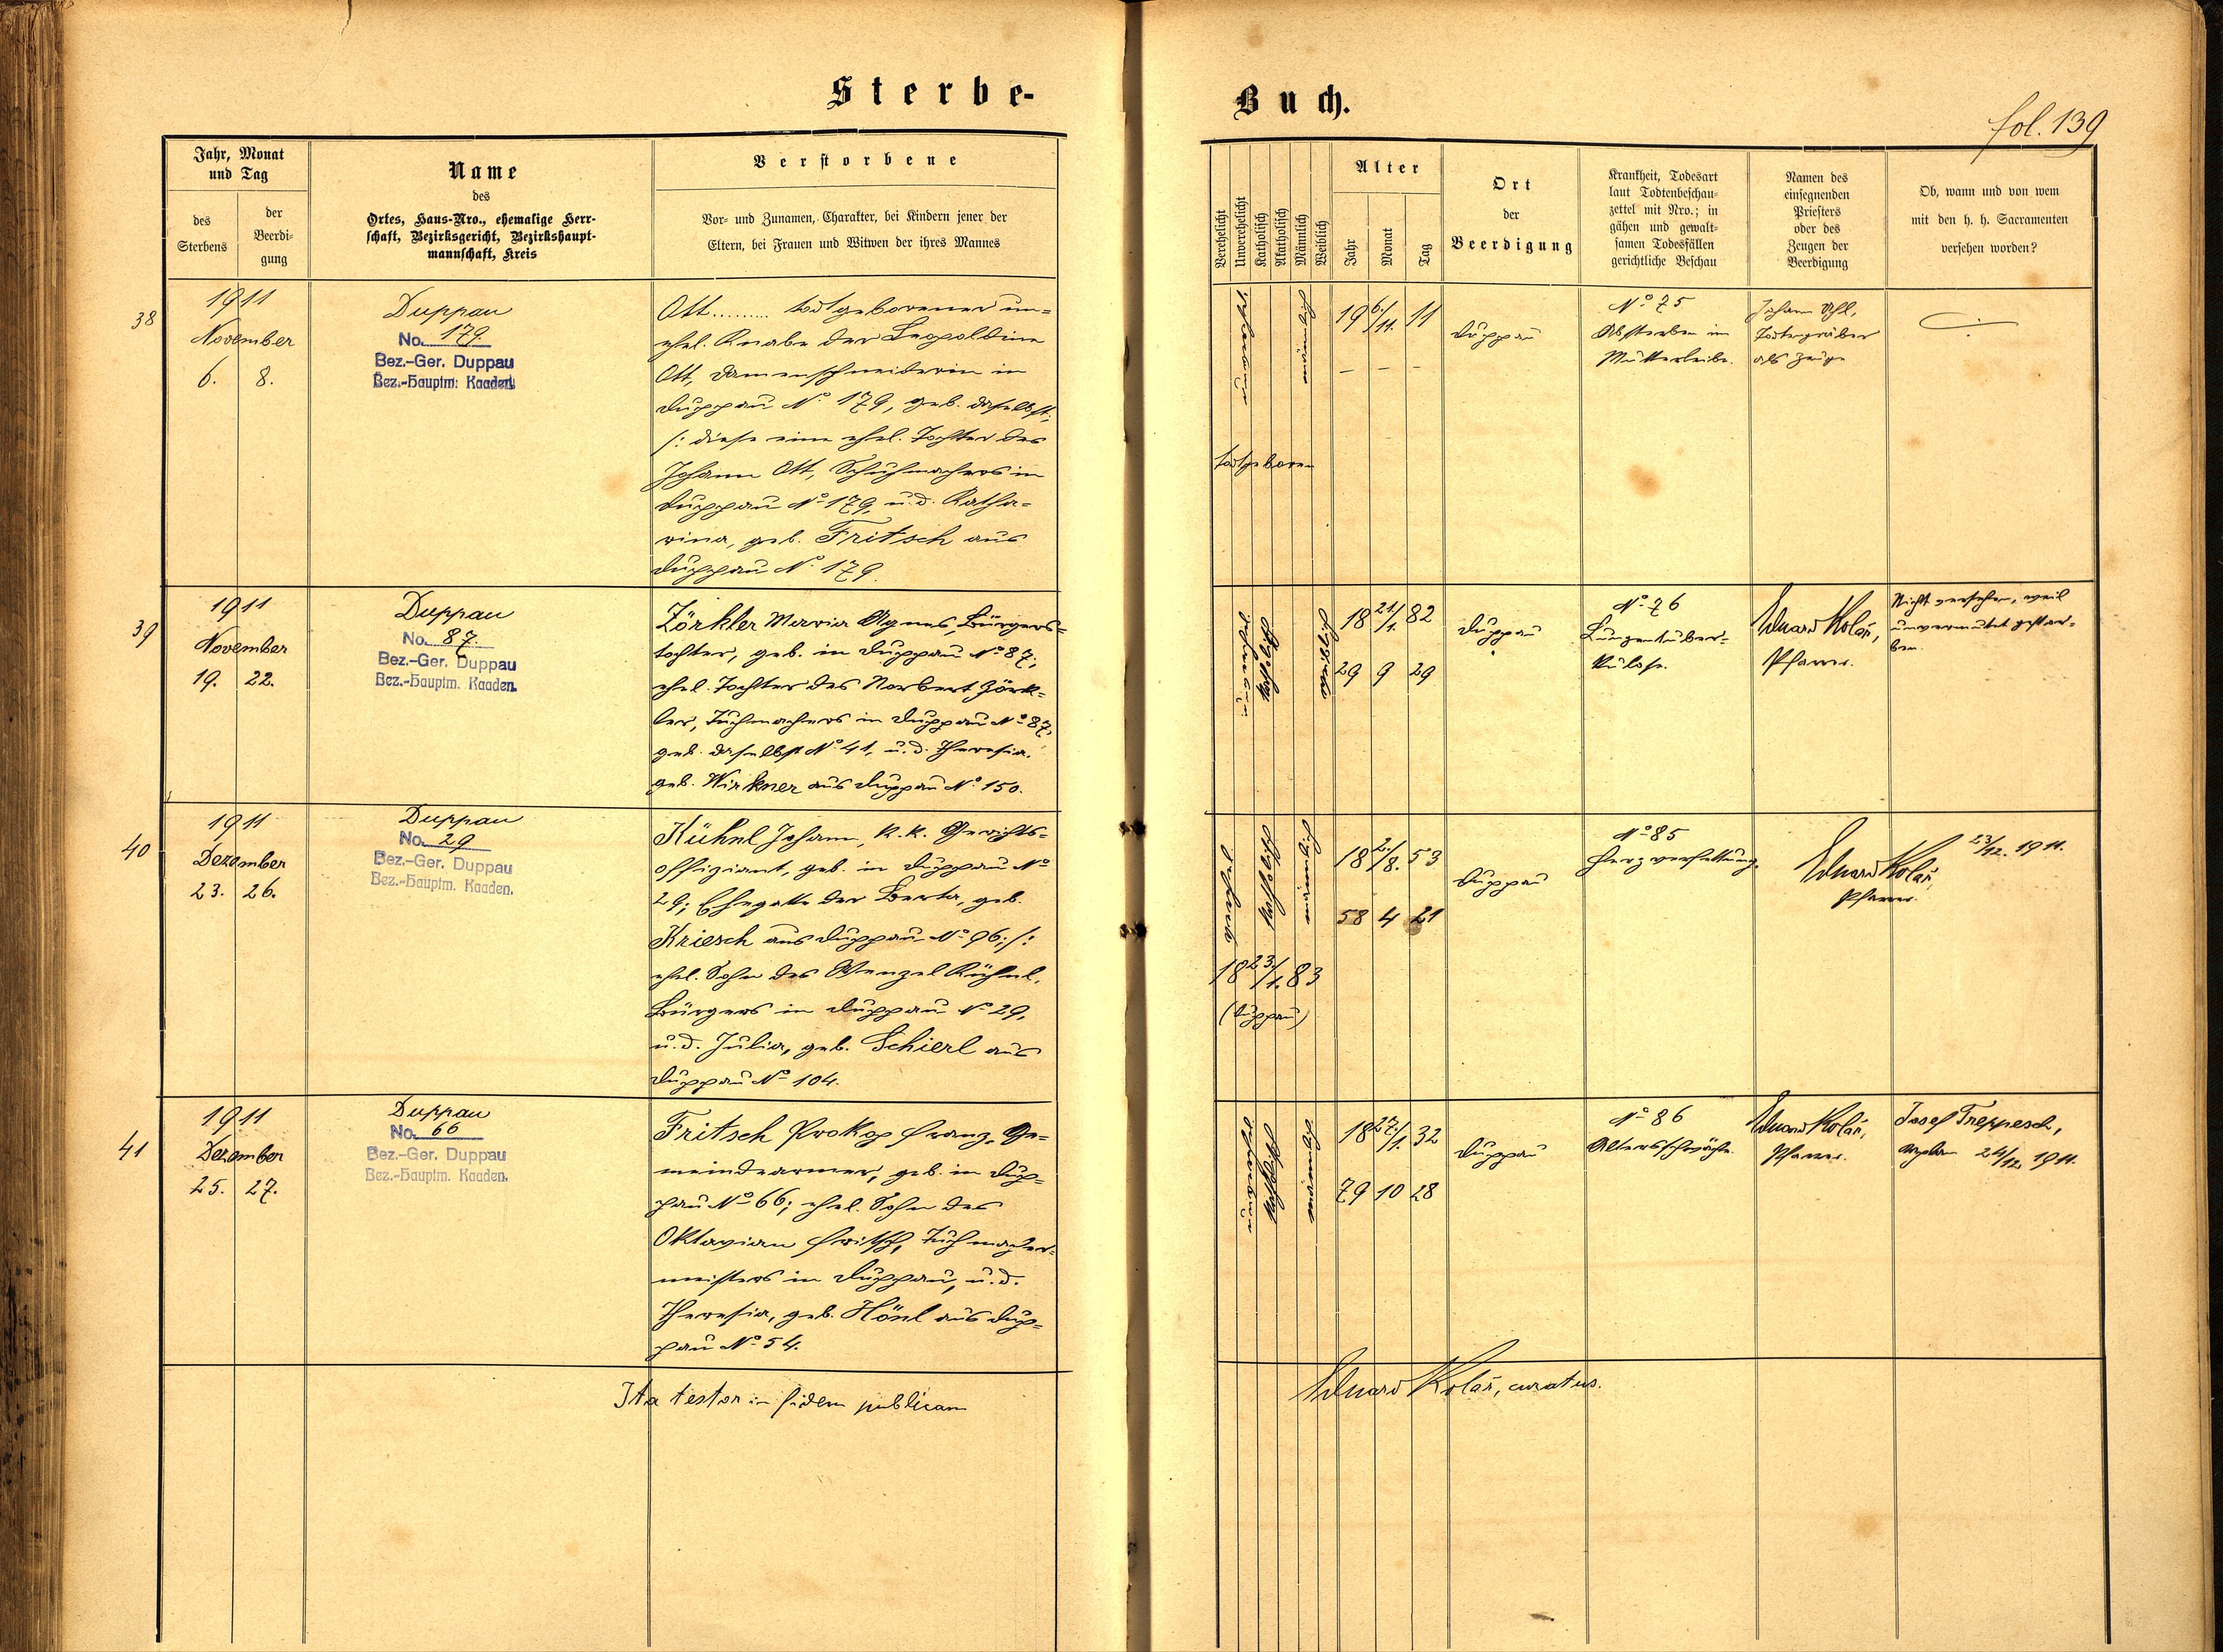 Sterbe-
Buch.
fol. 139
Jahr, Monat
und Tag
des
Sterbens
der
Beerdi-
gung
Name
des
Ortes, Haus-Nro., ehemalige Herr-
schaft, Bezirksgericht, Bezirkshaupt-
mannschaft, Kreis
Verstorbene
Vor- und Zunamen, Charakter, bei Kindern jener der
Eltern, bei Frauen und Witwen der ihres Mannes
Verehelicht
Unverehelicht
Katholisch
Akatholisch
Männlich
Weiblich
Alter
Jahr
Monat
Tag
Ort
der
Beerdigung
Krankheit, Todesart
laut Todtenbeschau-
zettel mit Nro.; in
gähen und gewalt-
samen Todesfällen
gerichtliche Beschau
Namen des
einsegnenden
Priesters
oder des
Zeugen der
Beerdigung
Ob, wann und von wem
mit den h. h. Sacramenten
versehen worden?
38
1911
November
6. 8.
Duppau
No. 179.
Bez.-Ger. Duppau
Bez.-Hauptm. Kaaden.
Ott ......... totgeborener un=
ehel. Knabe der Leopoldine
Ott, Damenschneiderin in
Duppau No 179, geb. daselbst;
/: diese eine ehel. Tochter des
Johann Ott, Schuhmachers in
Duppau No 179, u. d. Katha=
rina, geb. Fritsch aus
Duppau No 179.
totgeboren
männlich
19 6./11. 11
– – –
Duppau
No 75
Absterben im
Mutterleibe.
Johann
Totengräber
als Zeuge
39
1911
November
19. 22.
Duppau
No. 87.
Bez.-Ger. Duppau
Bez.-Hauptm. Kaaden.
Zörkler Maria Agnes, Bürgers=
tochter, geb. in Duppau No 87;
ehel. Tochter des Norbert Zörk=
ler, Tuchmachers in Duppau No 87,
geb. daselbst No 41, u. d. Theresia,
geb. Wirkner aus Duppau No 150.
katholisch
weiblich
18 21./1. 82
29 9 29
Duppau
No 76
Lungentuber=
kulose.
Eduard Kolář,
Pfarrer.
Nicht versehen, weil
unvermutet gestor=
ben.
40
1911
Dezember
23. 26.
Duppau
No. 29
Bez.-Ger. Duppau
Bez.-Hauptm. Kaaden.
Kühnl Johann, k. k. Gerichts=
offiziant, geb. in Duppau No
29; Ehegatte der Berta, geb.
Kriesch aus Duppau No 96; /:
ehel. Sohn des Wenzel Kühnl,
Bürgers in Duppau No 29,
u. d. Julia, geb. Schierl aus
Duppau No 104.
katholisch
männlich
18 23./1. 83
(Duppau)
18 2./8. 53
58 4 21
Duppau
No 85
Herzverfettung.
Eduard Kolář,
Pfarrer.
23/12. 1911.
41
1911
Dezember
25. 27.
Duppau
No. 66
Bez.-Ger. Duppau
Bez.-Hauptm. Kaaden.
Fritsch Prokop Franz, Ge=
meindearmer, geb. in Dup=
pau No 66; ehel. Sohn des
Oktavian Fritsch, Tuchmacher=
meisters in Duppau, u. d.
Theresia, geb. Hönl aus Dup=
pau No 54.
katholisch
männlich
18 27./1. 32
79 10 28
Duppau
No 86
Altersschwäche.
Eduard Kolář,
Pfarrer.
Josef Treppesch,
Kaplan 24/12. 1911.
Ita testor in fidem publicam
Eduard Kolář, curatus.